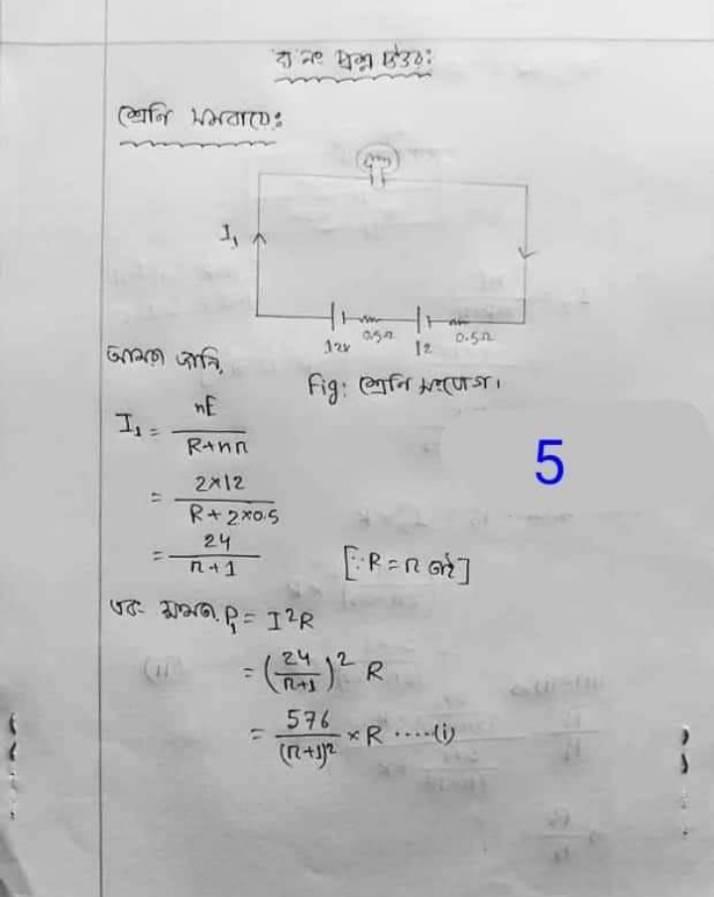 নং প্রশ্ন উত্তর:
শ্রেনি সমবায়ে:
I₁
0.5Ω 0.5Ω
12v 12
আমরা জানি,
Fig: শ্রেনি সংযোগ।
I₁ = nE / R+nr
= 2×12 / R + 2×0.5
5
= 24 / r+1 [∵R = r তাই]
এবং ক্ষমতা, P₁ = I²R
= (24 / r+1)² R
= 576 / (r+1)² × R ....(i)